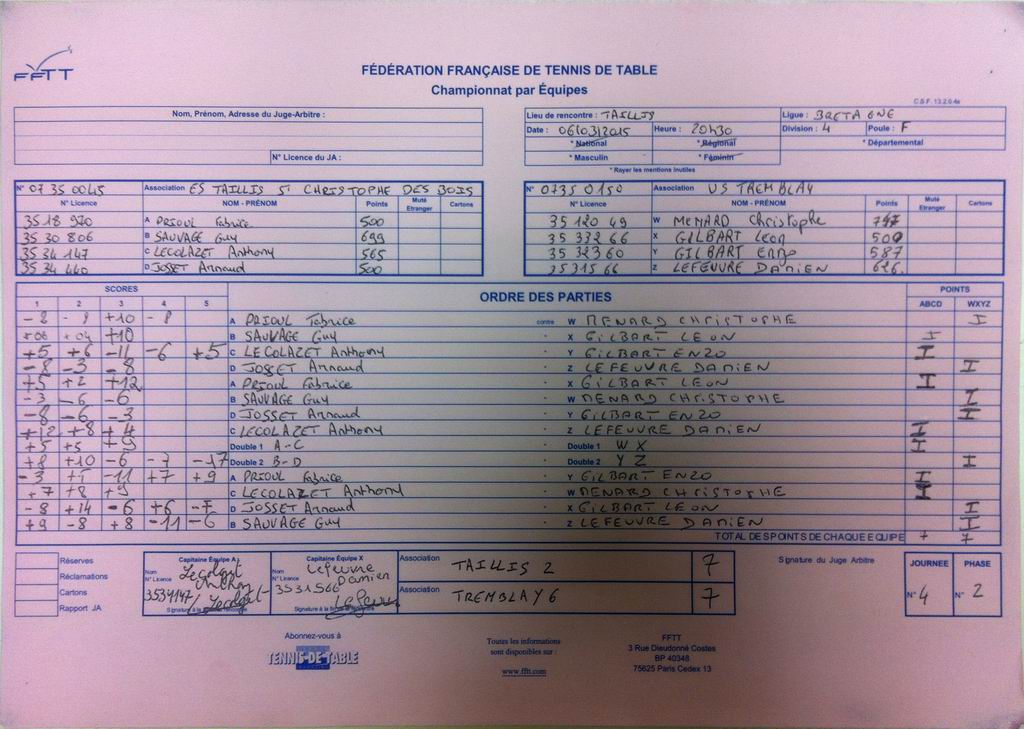 FFTT
FÉDÉRATION FRANÇAISE DE TENNIS DE TABLE
Championnat par Équipes
C.S.F. 13.2.0.4e
Nom, Prénom, Adresse du Juge-Arbitre :
N° Licence du JA :
Lieu de rencontre : TAILLIS Ligue : BRETAGNE
Date : 06/03/2015 Heure : 20h30 Division : 4 Poule : F
* National * Régional * Départemental
* Masculin * Féminin
* Rayer les mentions inutiles
N° 07 35 0045 Association ES TAILLIS ST CHRISTOPHE DES BOIS
N° Licence NOM - PRÉNOM Points Muté Etranger Cartons
35 18 970 A PRIOUL Fabrice 500
35 30 806 B SAUVAGE Guy 699
35 34 147 C LECOLAZET Anthony 565
35 34 440 D JOSSET Arnaud 500
N° 0735 0150 Association US TREMBLAY
N° Licence NOM - PRÉNOM Points Muté Etranger Cartons
35 120 49 W MENARD Christophe
35 332 66 X GILBART Leon 500
35 32360 Y GILBART Enzo 587
3531566 Z LEFEUVRE DAMIEN 626
SCORES ORDRE DES PARTIES POINTS
1 2 3 4 5 ABCD WXYZ
-8 -9 +10 -8 A PRIOUL Fabrice contre W MENARD CHRISTOPHE I
+06 +04 +10 B SAUVAGE Guy - X GILBART LEON I
+5 +6 -11 -6 +5 C LECOLAZET Anthony - Y GILBART ENZO I
-8 -3 -8 D JOSSET Arnaud - Z LEFEUVRE DAMIEN I
+5 +2 +12 A PRIOUL Fabrice - X GILBART LEON I
-3 -6 -6 B SAUVAGE Guy - W MENARD CHRISTOPHE I
-8 -6 -3 D JOSSET Arnaud - Y GILBART ENZO I
+12 +8 +4 C LECOLAZET Anthony - Z LEFEUVRE DAMIEN I
+5 +5 +9 Double 1 A-C - Double 1 W X I
+8 +10 -6 -7 -17 Double 2 B-D - Double 2 Y Z I
-3 -11 +7 +9 A PRIOUL Fabrice - Y GILBART ENZO I
+7 +8 +9 C LECOLAZET Anthony - W MENARD CHRISTOPHE I
-8 +14 -6 +6 -7 D JOSSET Arnaud - X GILBART LEON I
+9 -8 +8 -11 -6 B SAUVAGE Guy - Z LEFEUVRE DAMIEN I
TOTAL DES POINTS DE CHAQUE EQUIPE 7 7
Réserves
Réclamations
Cartons
Rapport JA
Capitaine Équipe A
Nom
N° Licence
3534147
Signature à la
Capitaine Équipe X
Nom Lefeuvre Damien
N° Licence
3531566
Signature à la
Association TAILLIS 2 7
Association TREMBLAY 6 7
Signature du Juge Arbitre
JOURNEE PHASE
N° 4 N° 2
Abonnez-vous à
TENNIS DE TABLE
Toutes les informations
sont disponibles sur :
www.fftt.com
FFTT
3 Rue Dieudonné Costes
BP 40348
75625 Paris Cedex 13